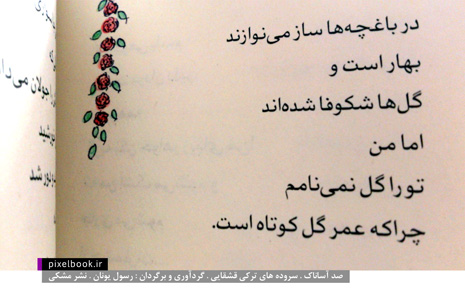 در باغچه‌ها ساز می‌نوازند
بهار است و
گل‌ها شکوفا شده‌اند
اما من
تو را گل نمی‌نامم
چرا که عمر گل کوتاه است.
جولان می‌دا
شد
pixelbook.ir
صد آساناک . سروده های ترکی قشقایی . گردآوری و برگردان : رسول یونان . نشر مشکی